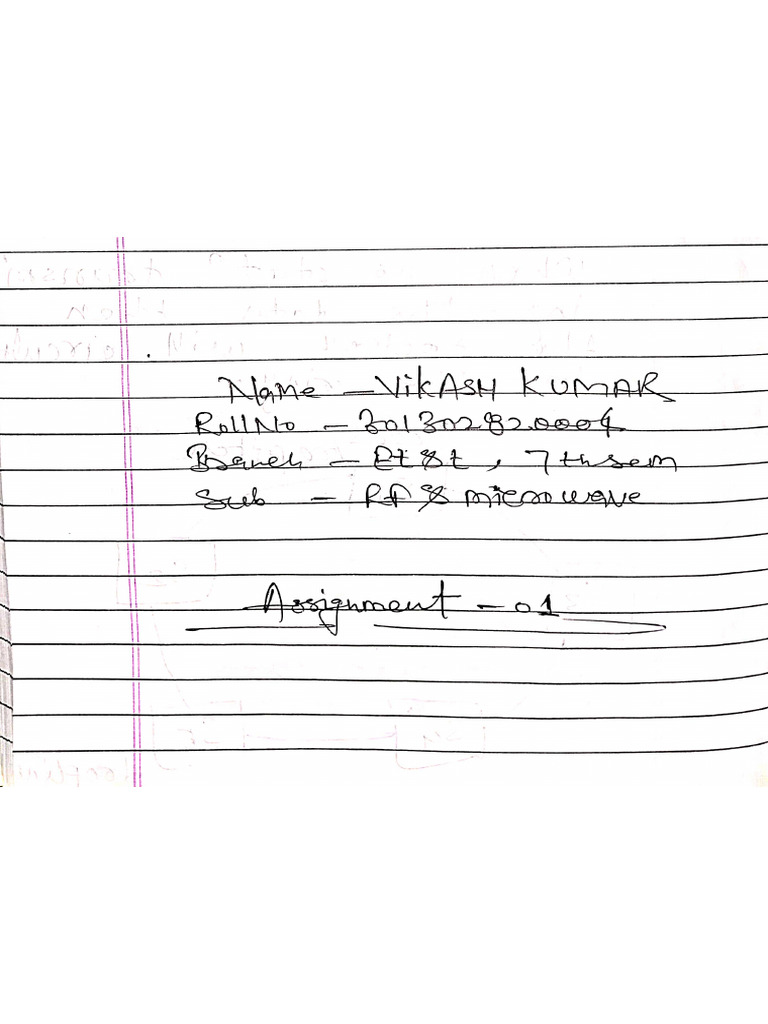 Name - VikASH KUMAR
Roll No - 301302820004
Branch - Et&t, 7th sem
Sub - RF & microwave
Assignment - 01